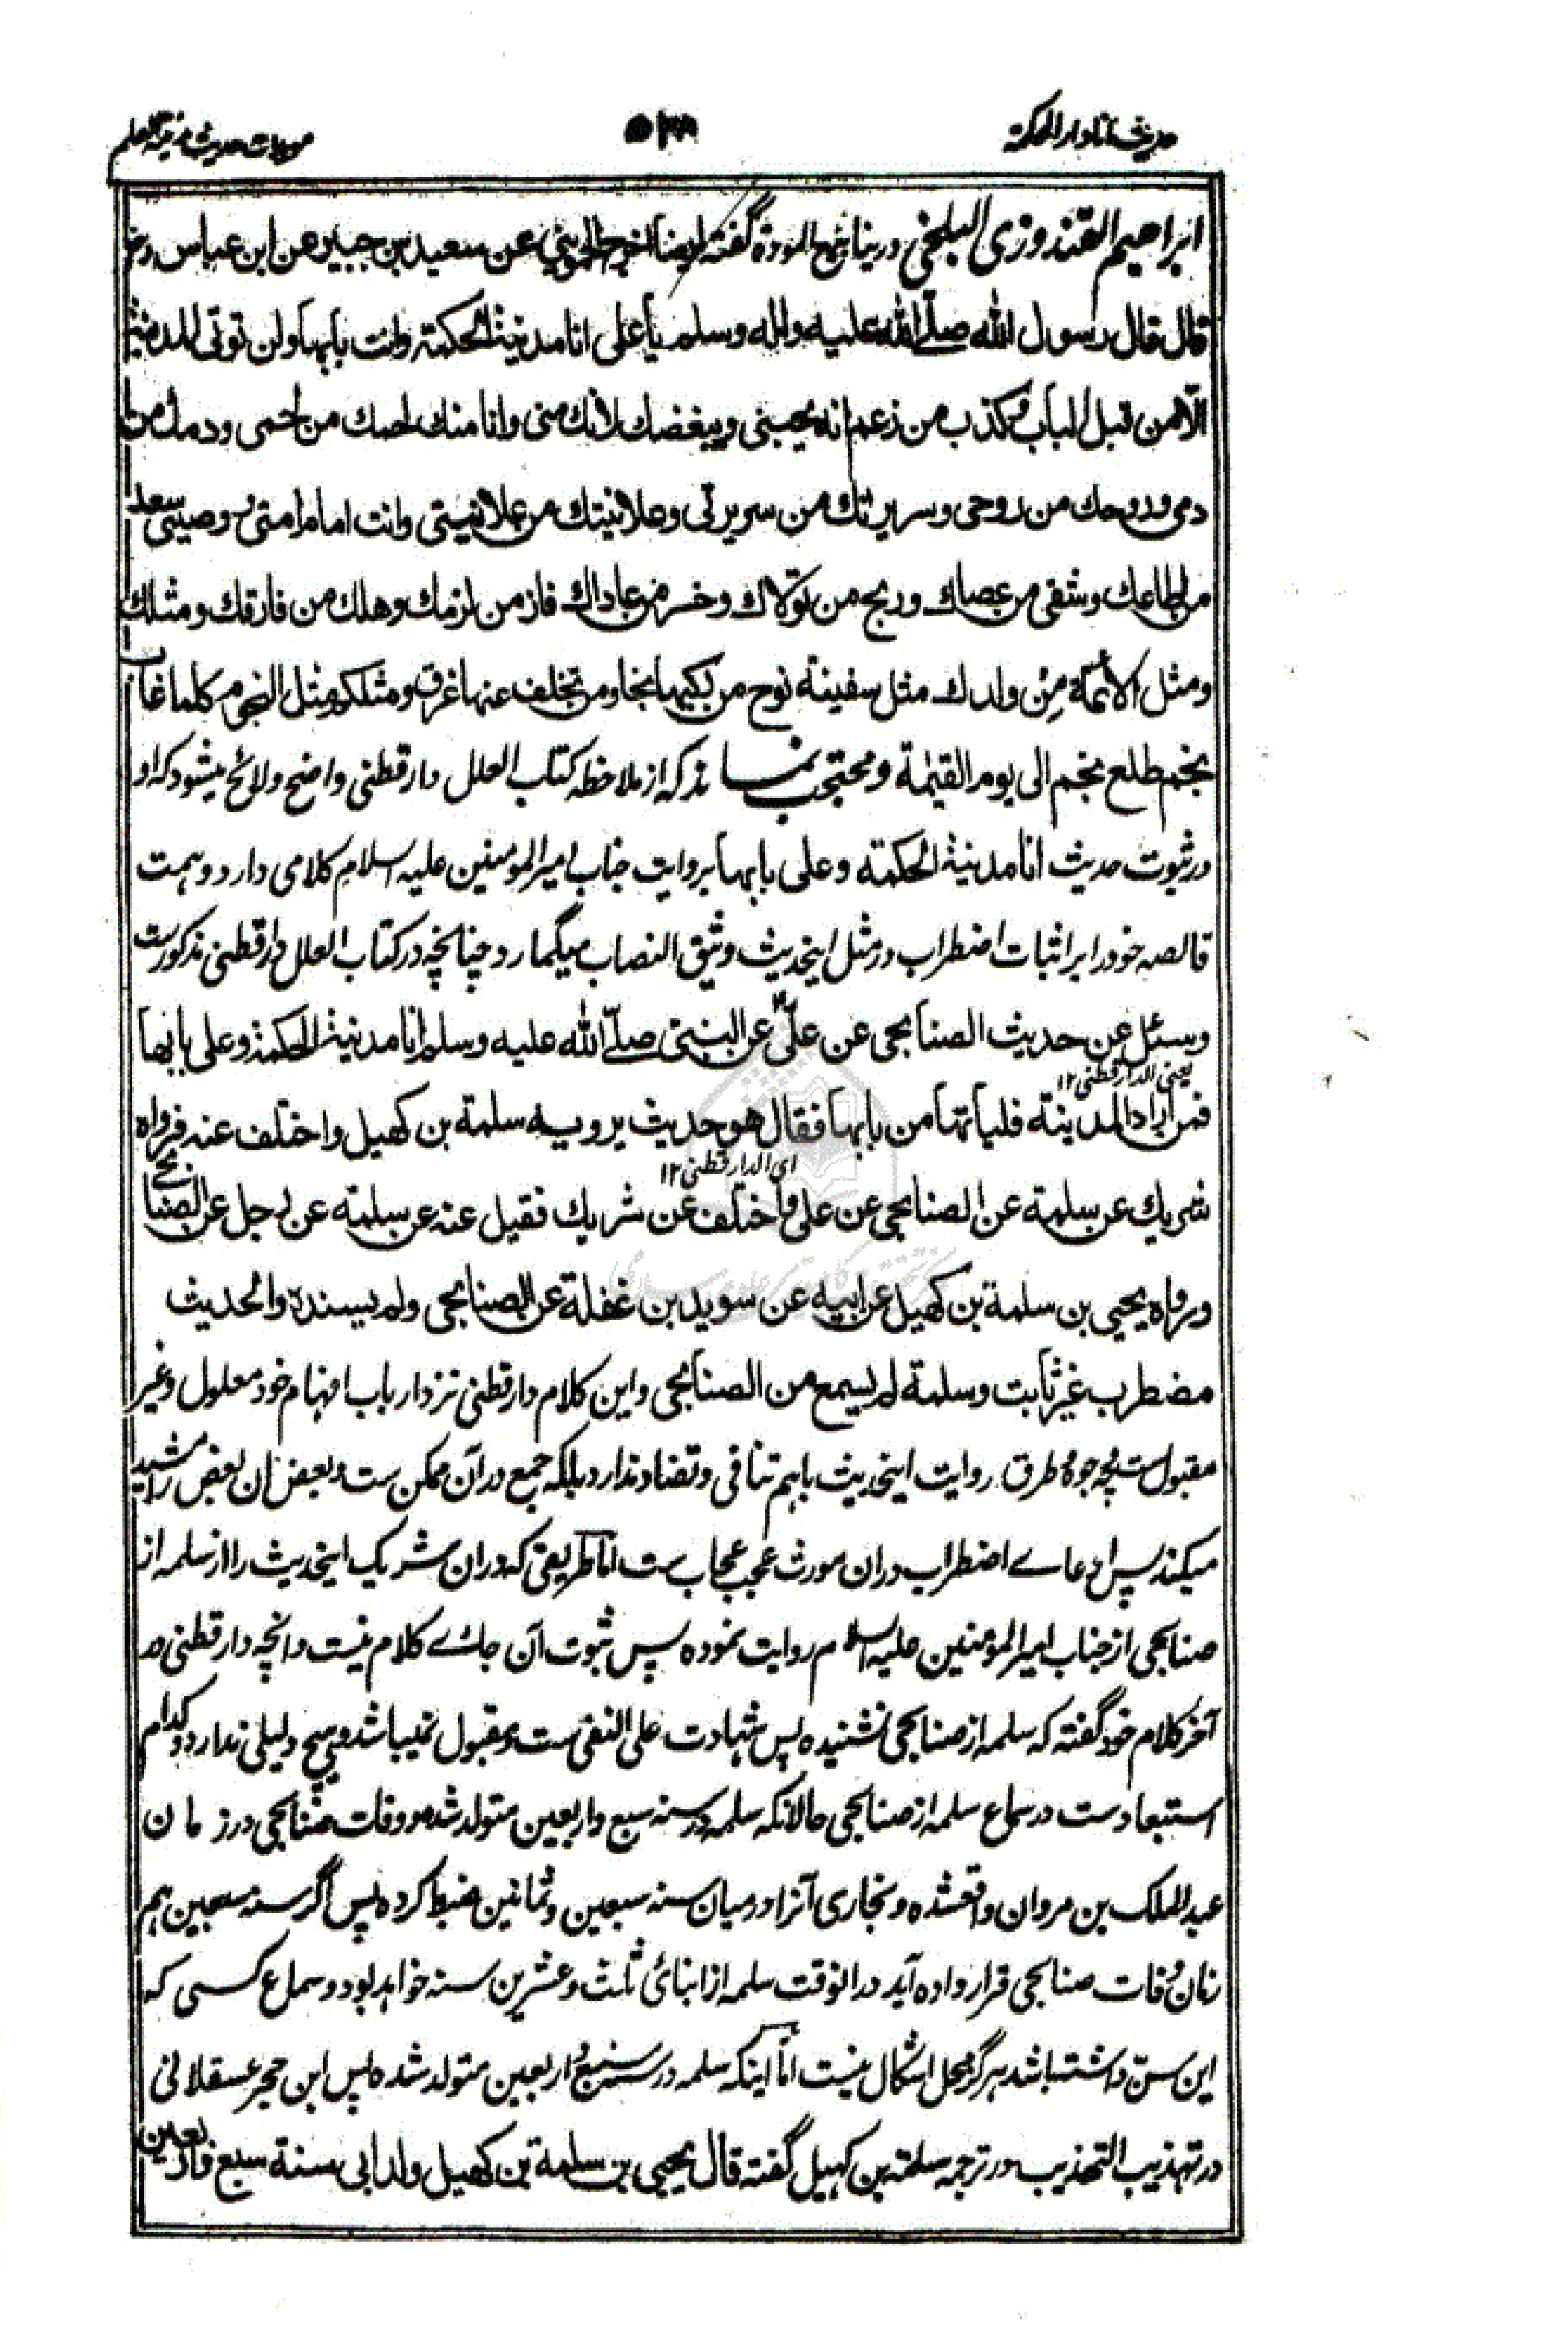 حدیث انا دار الحکمة
۵۳۸
مویدات حدیث مدینة العلم
ابراهیم القندوزی البلخی در ینابیع المودة گفته ایضا اخرج الحموینی عن سعید بن جبیر عن ابن عباس رض
قال قال رسول الله صلّی الله علیه واله وسلم یا علی انا مدینة الحکمة وانت بابها ولن توتی المدینة
الّا من قبل الباب فکذب من زعم انه یحبنی ویبغضك لانك منی وانا منك لحمك من لحمی ودمك من
دمی وروحك من روحی وسریرتك من سریرتی وعلانیتك من علانیتی وانت امام امتی ووصیی سعد
من اطاعك وشقی من عصاك وربح من تولّاك وخسر من عاداك فاز من لزمك وهلك من فارقك ومثلك
ومثل الائمّة مِنْ ولدك مثل سفینة نوح من رکبها نجا ومن تخلف عنها غرق ومثلکم مثل النجوم کلما غاب
نجم طلع نجم الی یوم القیٰمة ومحتجب نماند که از ملاحظه کتاب العلل دارقطنی واضح ولائح میشود که او
در ثبوت حدیث انا مدینة الحکمة وعلی بابها بروایت جناب امیر المومنین علیه السلام کلامی دارد وهمت
قالصه خود را بر اثبات اضطراب در مثل اینحدیث وثیق النصاب میگمارد چنانچه در کتاب العلل دارقطنی مذکورست
وسئل عن حدیث الصنابحی عن علیّ عن النبی صلّی الله علیه وسلم انا مدینة الحکمة وعلی بابها
یعنی الدارقطنی ۱۲
فمن اراد المدینة فلیأتها من بابها فقال هو حدیث یرویه سلمة بن کهیل واختلف عنه فرواه
ای الدارقطنی ۱۲
شریك عن سلمة عن الصنابحی عن علی واختلف عن شریك فقیل عنه عن سلمة عن رجل عن الصنابحی
ورواه یحیی بن سلمة بن کهیل عن ابیه عن سوید بن غفلة عن الصنابحی ولم یسنده والحدیث
مضطرب غیر ثابت وسلمة لم یسمع من الصنابحی واین کلام دارقطنی نزد ارباب افهام خود معلول وغیر
مقبول ست چه وجوه طرق روایت اینحدیث باهم تنافی وتضاد ندارد بلکه جمع در آن ممکن ست وبعض ان بعض را مشید
میکند پس ادعاے اضطراب دران مورث عجب عجاب ست اما طریقی که دران شریک اینحدیث را از سلمه از
صنابحی از جناب امیر المومنین علیه السلام روایت نموده پس ثبوت آن جاے کلام نیست وانچه دارقطنی در
آخر کلام خود گفته که سلمه از صنابحی نشنیده پس شهادت علی النفی ست ومقبول نمیباشد وهیچ دلیلی ندارد وکدام
استبعادست در سماع سلمه از صنابحی حالانکه سلمه در سنه سبع واربعین متولد شده ووفات صنابحی در زمان
عبد الملک بن مروان واقعشده وبخاری آنرا در میان سنه سبعین وثمانین ضبط کرده پس اگر سنه سبعین هم
زمان وفات صنابحی قرار داده آید در انوقت سلمه از ابنائ ثلث وعشرین سنه خواهد بود وسماع کسی که
این سنّ داشته باشد هرگز محل اشکال نیست امّا اینکه سلمه در سنه سبع واربعین متولد شده پس ابن حجر عسقلانی
در تهذیب التهذیب در ترجمه سلمة بن کهیل گفته قال یحیی بن سلمة بن کهیل ولد ابی سنة سبع واربعین